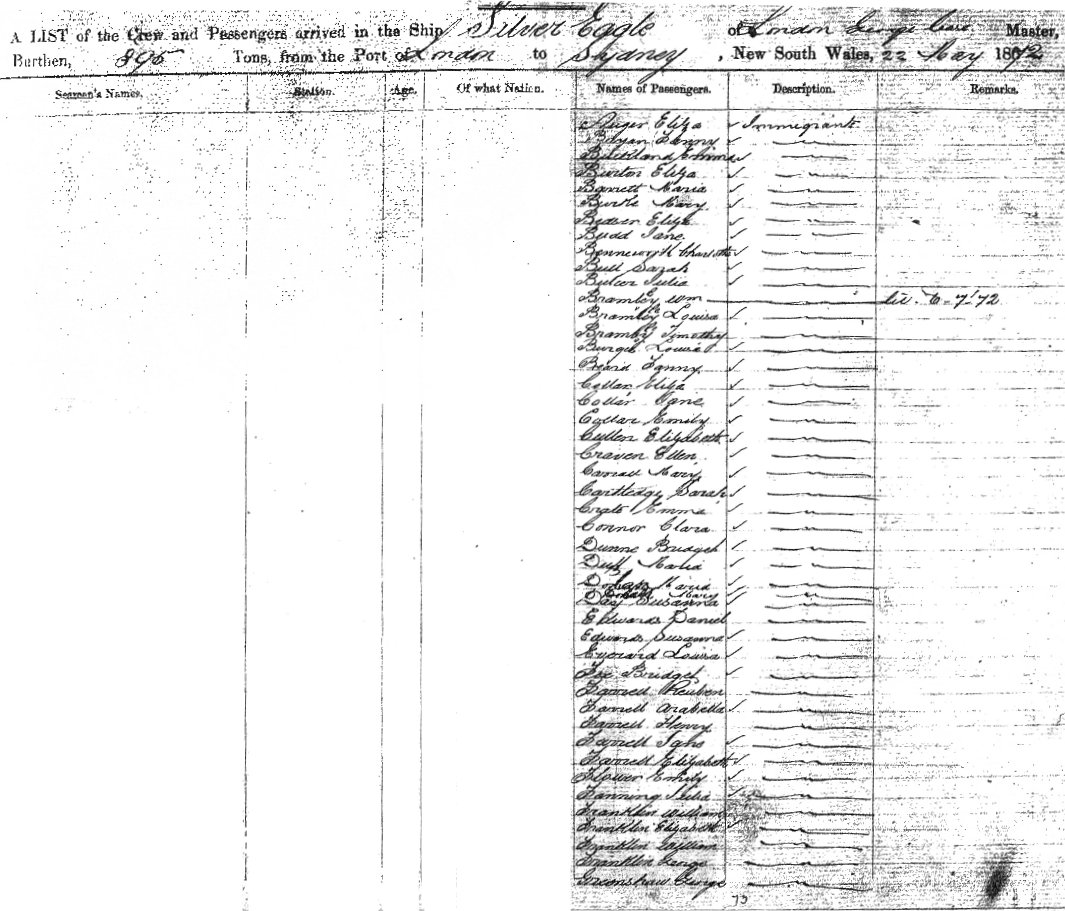 A LIST of the Crew and Passengers arrived in the Ship Silver Eagle of London George Master,
Burthen, 895 Tons, from the Port of London to Sydney, New South Wales, 22 May 1872
Seamen's Names. Station. Age. Of what Nation. Names of Passengers. Description. Remarks.
Eliza ✓ Immigrants
Bryan Fanny ✓
Buckland Emma ✓
Burton Eliza ✓
Barrett Maria ✓
Burtle Mary ✓
Beaver Eliza ✓
Budd Jane ✓
Benneworth Charlotte ✓
Bull Sarah ✓
Julia ✓
Bramley Wm 7 '72
Bramley Louisa ✓
Bramley Timothy
Burgess Louisa ✓
Beard Fanny ✓
Collar Eliza ✓
Collar Jane ✓
Collar Emily ✓
Cullen Elizabeth ✓
Craven Ellen ✓
Mary ✓
Cartledge Sarah ✓
Emma ✓
Connor Clara ✓
Dunne Bridget ✓
Duff Maria ✓
Maria ✓
Mary ✓
Day Susanna ✓
Edwards Daniel
Edwards Susanna ✓
Everard Louisa ✓
Fox Bridget ✓
Farrell Reuben
Farrell Arabella ✓
Farrell Henry
Farrell Jane ✓
Farrell Elizabeth ✓
Flower Emily ✓
Fanning Julia ✓
Franklin William
Franklin Elizabeth ✓
Franklin William
Franklin George
Greenshaw George
73